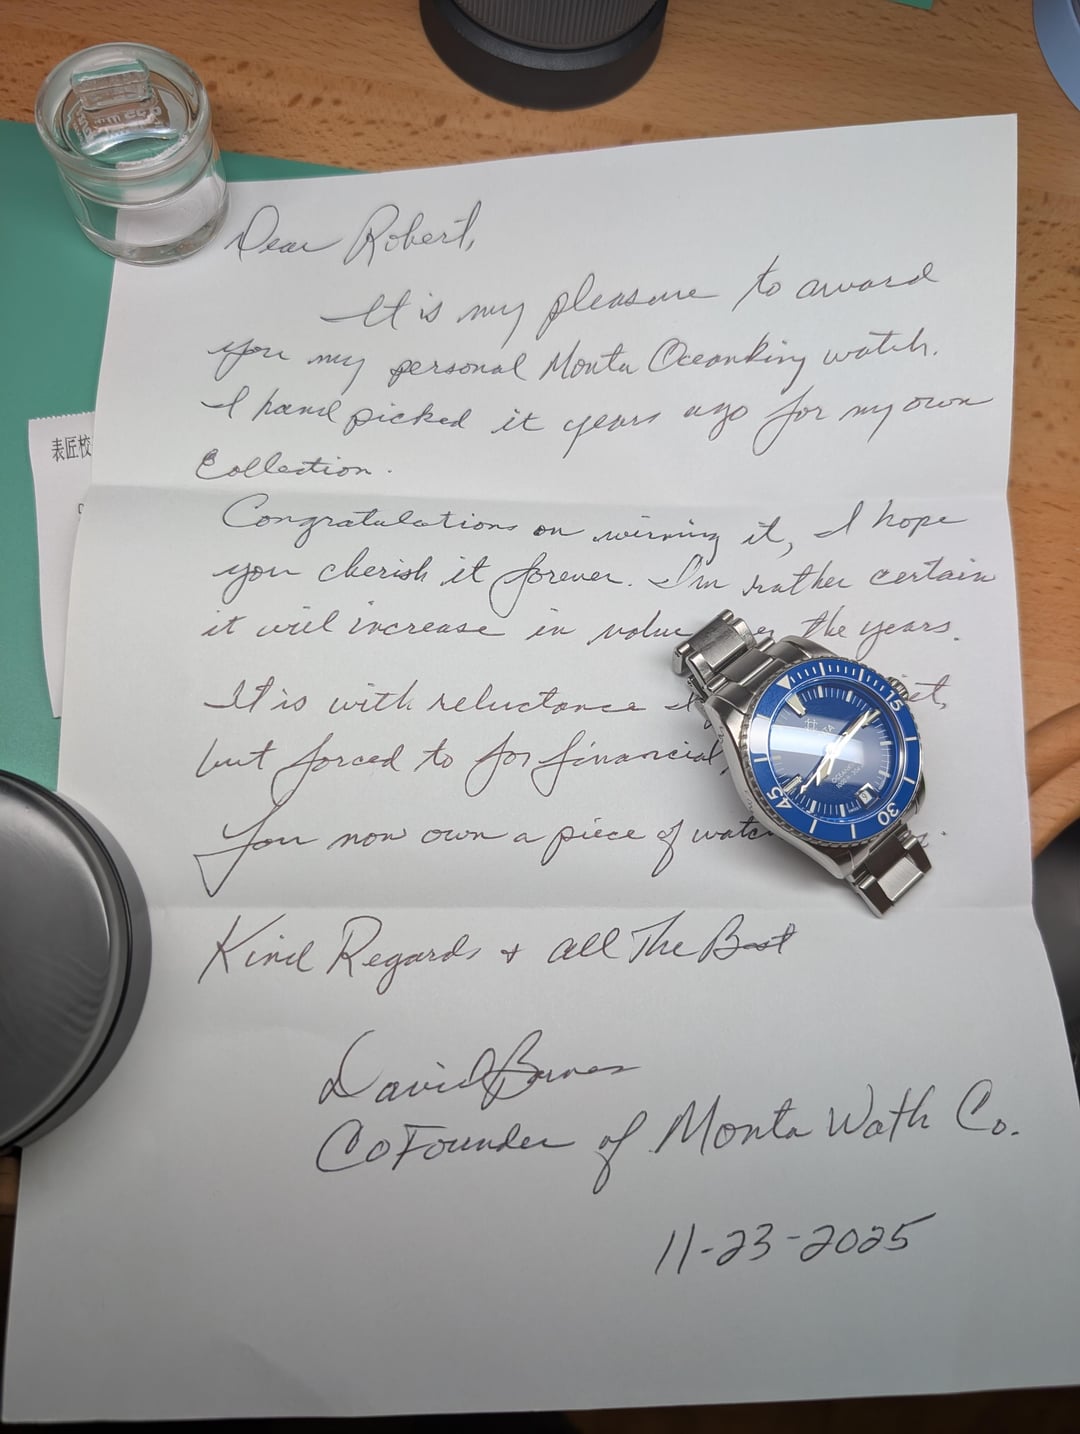 Dear Robert,
It is my pleasure to award
you my personal Monta Oceanking watch.
I hand picked it years ago for my own
Collection.
表匠校
Congratulations on winning it, I hope
you cherish it forever. I'm rather certain
it will increase in value the years.
It is with reluctance I
but forced to for financial,
You now own a piece of
Kind Regards + all The Best
David Barnes
CoFounder of Monta Wath Co.
11-23-2025
15
30
45